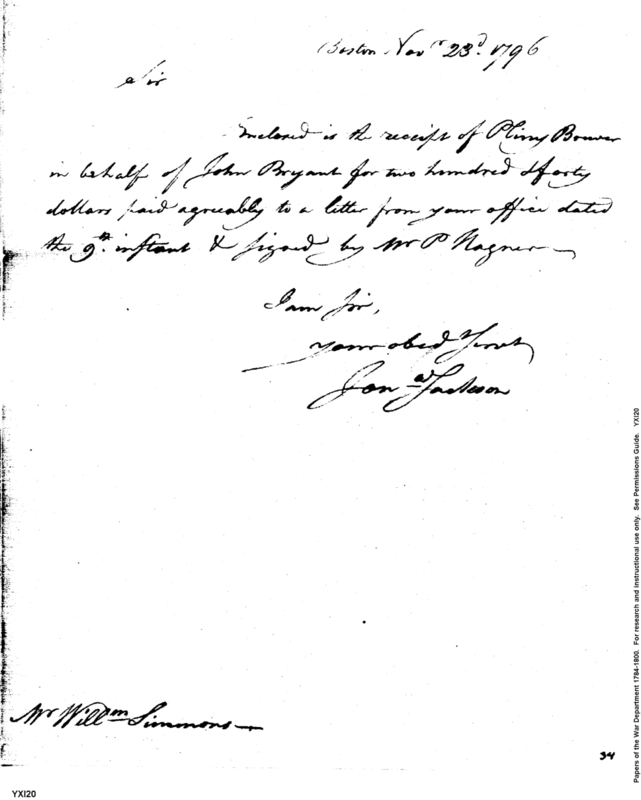 Boston Nov.r 23.d 1796
Sir
Enclosed is the receipt of Pliny Bower
in behalf of John Bryant for two hundred & forty
dollars paid agreeably to a letter from your office dated
the 9.th instant & signed by Mr P Hagner
I am Sir,
your obed.t Servt
Jon.a Jackson
Mr Will.m Simmons
34
YXI20
Papers of the War Department 1784-1800. For research and instructional use only. See Permissions Guide. YXI20